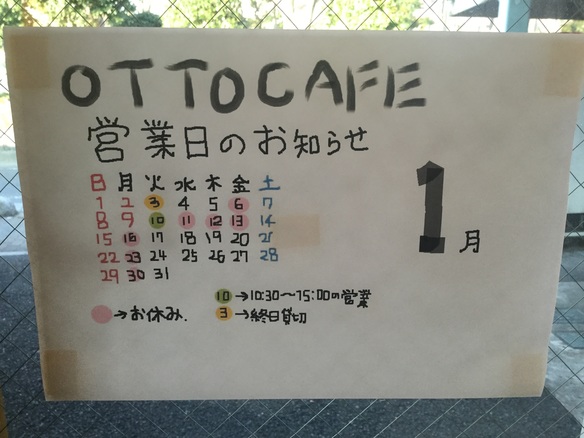 OTTO CAFE
営業日のお知らせ
1月
日 月 火 水 木 金 土
1 2 3 4 5 6 7
8 9 10 11 12 13 14
15 16 17 18 19 20 21
22 23 24 25 26 27 28
29 30 31
→お休み.
10→10:30～15:00の営業
3→終日貸切